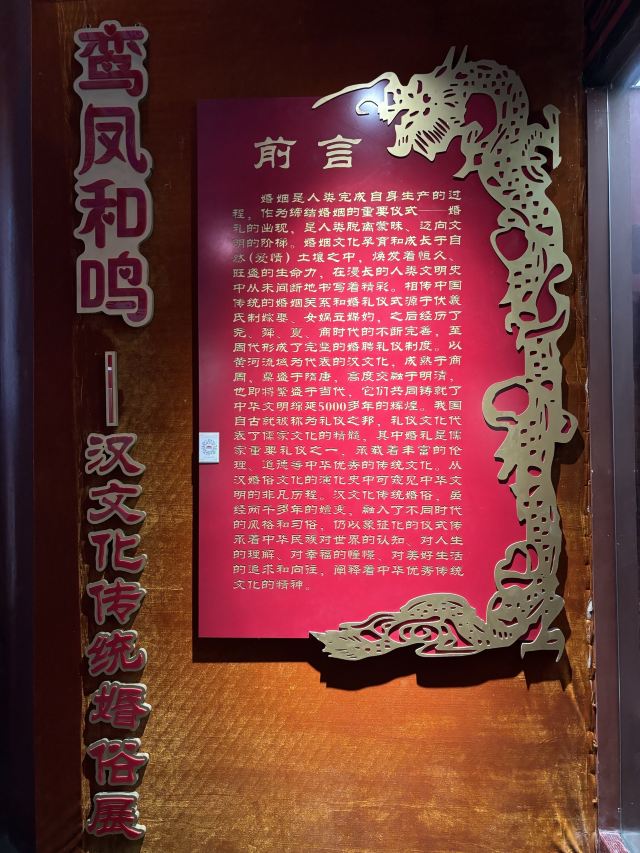 鸾凤和鸣
——汉文化传统婚俗展
前言
婚姻是人类完成自身生产的过
程，作为缔结婚姻的重要仪式——婚
礼的出现，是人类脱离蒙昧、迈向文
明的阶梯。婚姻文化孕育和成长于自
然(爱情)土壤之中，焕发着恒久、
旺盛的生命力，在漫长的人类文明史
中从未间断地书写着精彩。相传中国
传统的婚姻关系和婚礼仪式源于伏羲
氏制嫁娶、女娲立媒妁，之后经历了
尧、舜、夏、商时代的不断完善，至
周代形成了完整的婚聘礼仪制度。以
黄河流域为代表的汉文化，成熟于商
周，鼎盛于隋唐，高度交融于明清，
也即将繁盛于当代，它们共同铸就了
中华文明绵延5000多年的辉煌。我国
自古就被称为礼仪之邦，礼仪文化代
表了儒家文化的精髓，其中婚礼是儒
家重要礼仪之一，承载着丰富的伦
理、道德等中华优秀的传统文化。从
汉婚俗文化的演化史中可窥见中华文
明的非凡历程。汉文化传统婚俗，虽
经两千多年的嬗变，融入了不同时代
的风格和习俗，仍以象征化的仪式传
承着中华民族对世界的认知、对人生
的理解、对幸福的憧憬、对美好生活
的追求和向往，阐释着中华优秀传统
文化的精神。